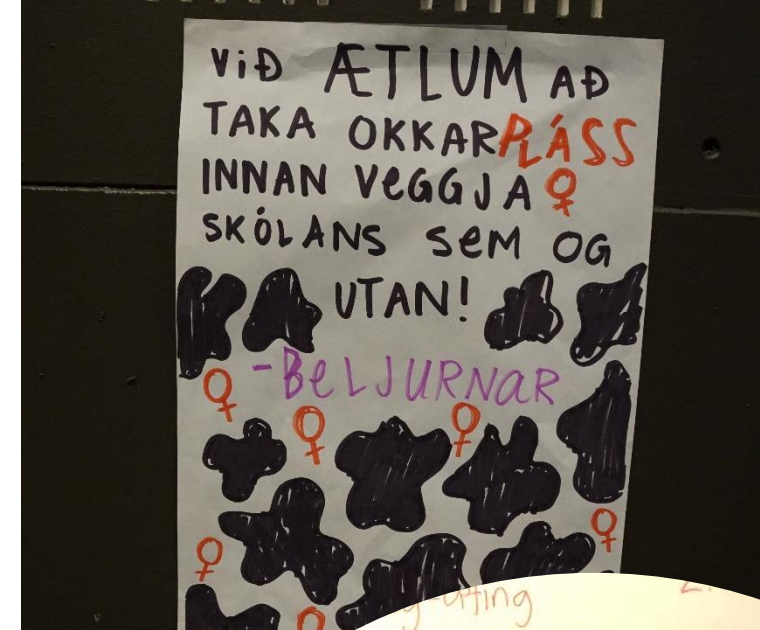 ViÐ ÆTLUM AÐ
TAKA OKKAR PLÁSS
INNAN VeGGJA ♀
SKÓLANS SeM OG
UTAN!
-BeLJURNaR